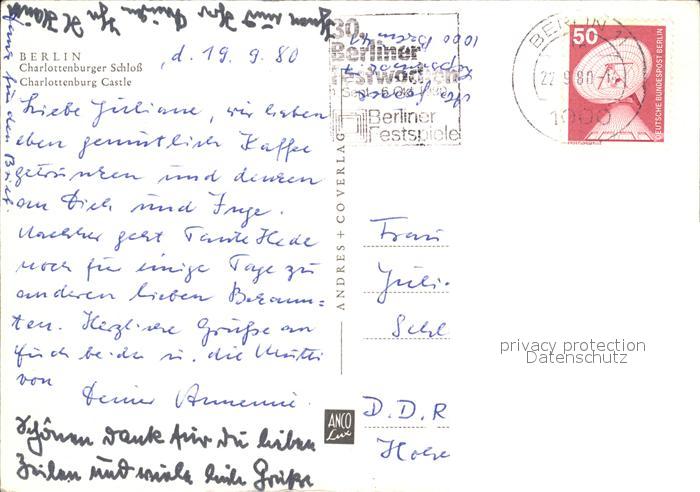 BERLIN
Charlottenburger Schloß
Charlottenburg Castle
d. 19. 9. 80
Liebe Juliane, wir haben
eben gemütlich Kaffee
getrunken und denken
an Dich und Inge.
Nachher geht Tante Hede
noch für einige Tage zu
anderen lieben Bekann=
ten. Herzliche Grüße an
Euch beide u. die Mutti
von
Deiner Annemie.
Schönen Dank für die lieben
Zeilen und viele liebe Grüße
für den Brief.
1000 Berlin
30.
Berliner
Festwochen
Berliner
Festspiele
BERLIN 11
22.9.80
1000
50
DEUTSCHE BUNDESPOST BERLIN
ANDRES + CO VERLAG
ANCO
Frau
Juli-
D.D.R
privacy protection
Datenschutz